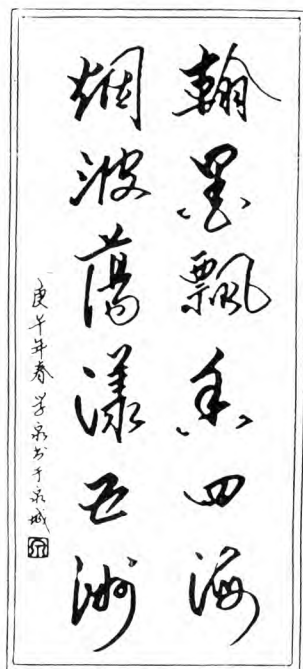 翰墨飘香四海
烟波荡漾五洲
庚午年春学泉书于泉城